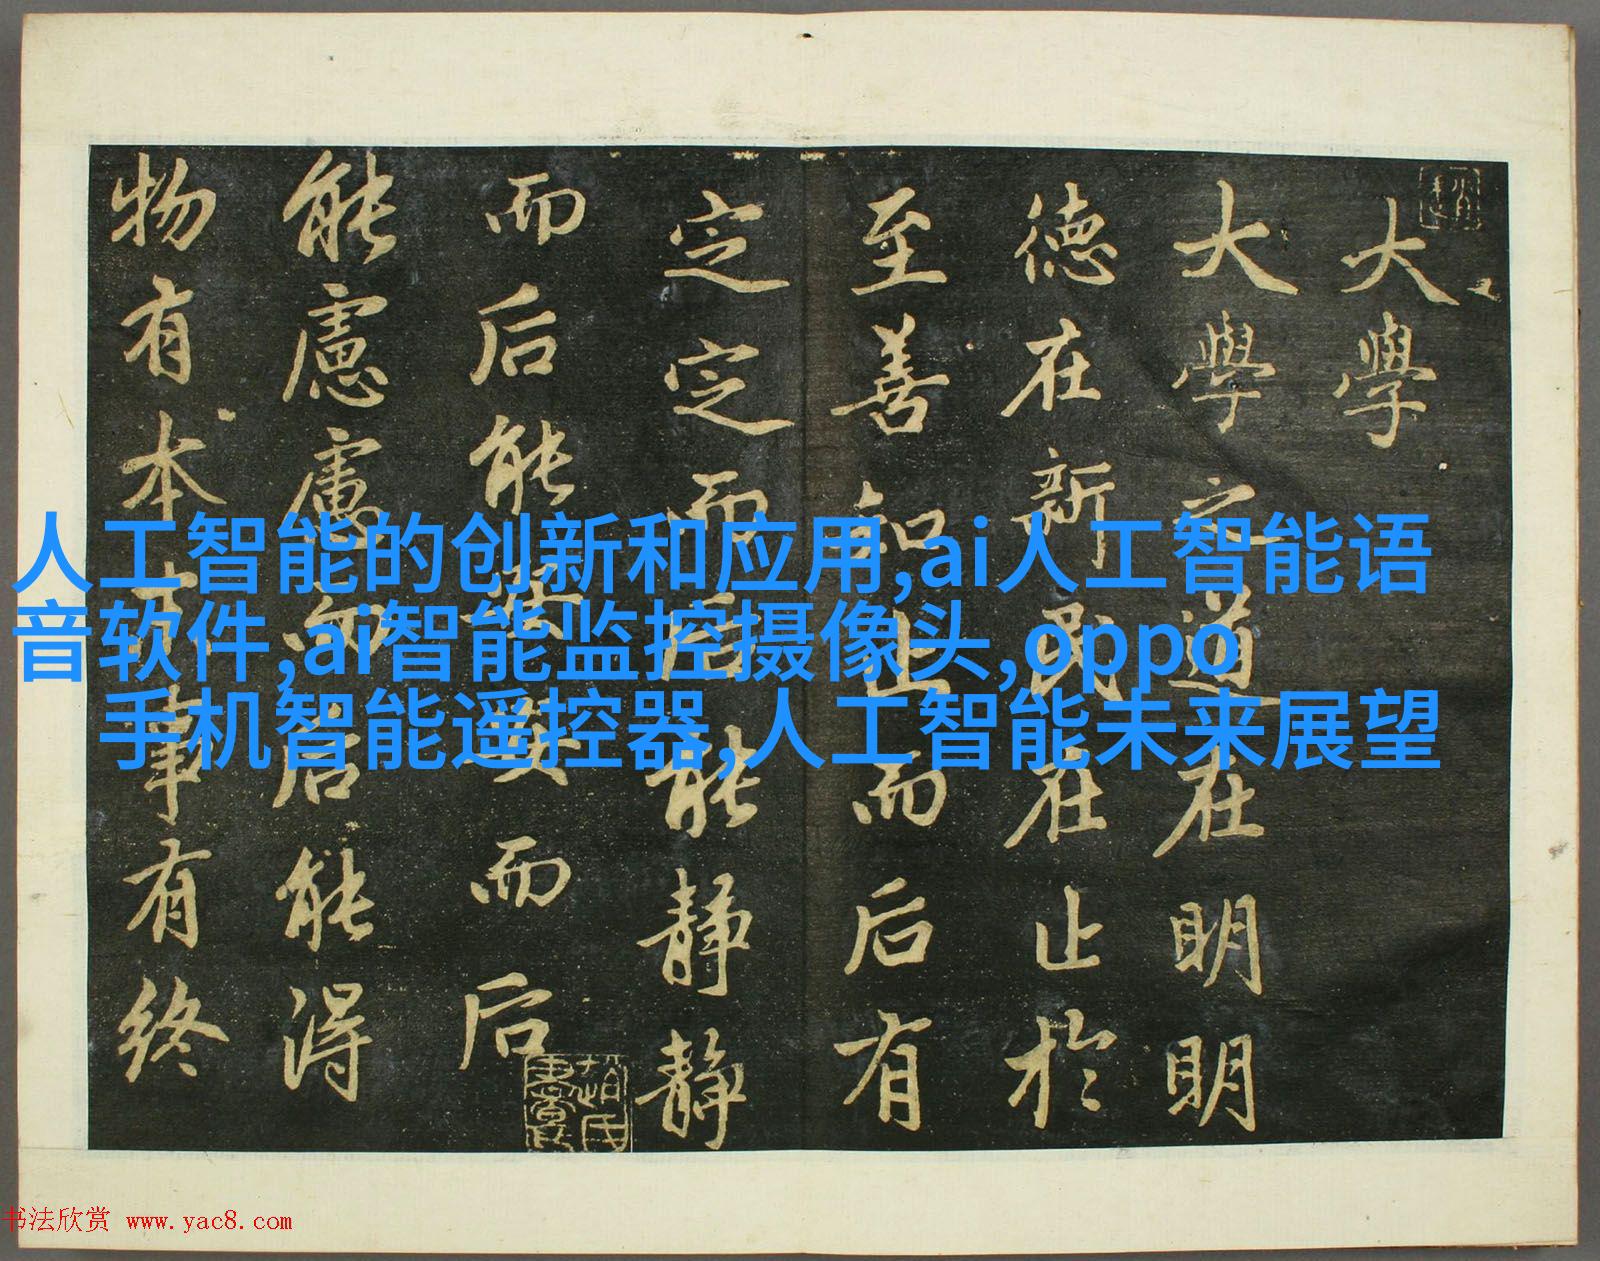 大學
大學之道在明明
德在新民在止於
至善知止而后有
定定而后能静静
而后能安安而后
能慮慮而后能得
物有本末事有終
人工智能的创新和应用,ai人工智能语
音软件,ai智能监控摄像头,oppo
手机智能遥控器,人工智能未来展望
书法欣赏 www.yac8.com